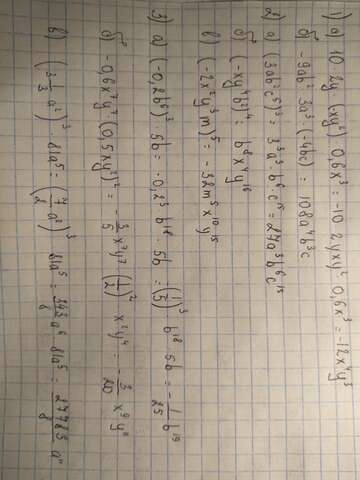 1) а) 10·2y·(-xy²)·0,6x³ = -10·2yxy²·0,6x³ = -12x⁴y³
б) -9ab²·3a³·(-4bc) = 108a⁴b³c
2) а) (3ab²c⁵)³ = 3³a³·b⁶·c¹⁵ = 27a³b⁶c¹⁵
б) (-xy⁴b²)⁴ = b⁸x⁴y¹⁶
в) (-2x²y³m)⁵ = -32m⁵x¹⁰y¹⁵
3) а) (-0,2b⁶)³·5b = -0,2³·b¹⁸·5b = (1/5)³ b¹⁸ 5b = -1/25 b¹⁹
б) -0,6x⁷y⁷·(0,5xy²)² = -3/5 x⁷y⁷ (1/2)² x²y⁴ = -3/20 x⁹y¹¹
в) (3 1/3 a²)³·81a⁵ = (7/2 a²)³ 81a⁵ = 343/8 a⁶·81a⁵ = 27783/8 a¹¹